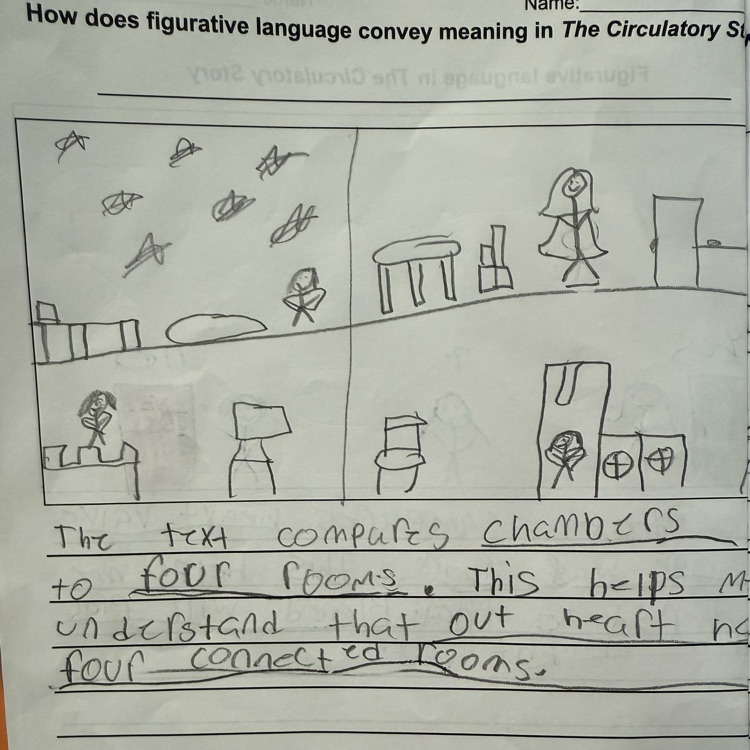 Name:
How does figurative language convey meaning in The Circulatory
Figurative language in The Circulatory Story
The text compares chambers
to four rooms. This helps
understand that out heart
four connected rooms.